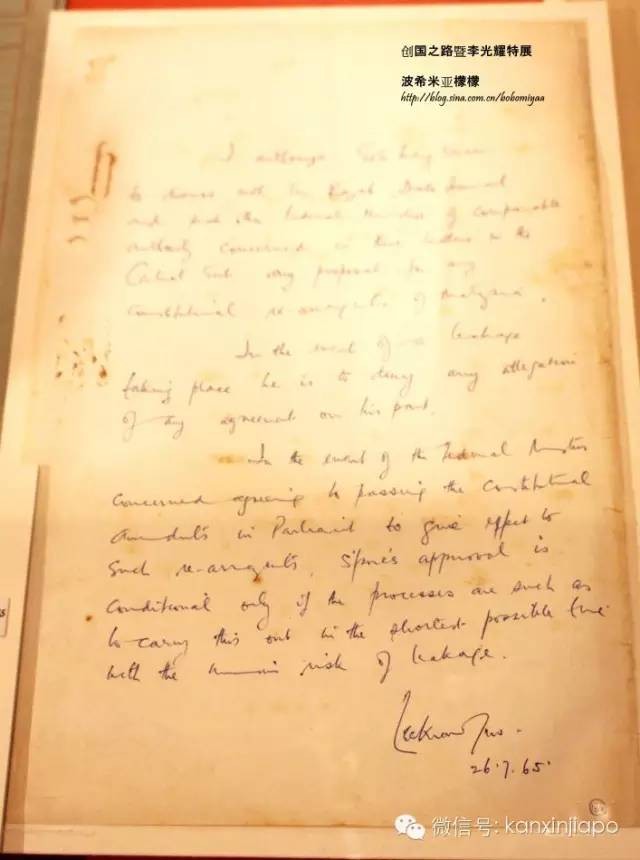 创国之路暨李光耀特展
波希米亚檬檬
http://blog.sina.com.cn/bobomiyaa
I authorise Goh Keng Swee
to discuss with Tun Razak Dato Ismail
and such other Federal Ministers of comparable
authority concerned in these matters in the
Central Govt any proposal for any
constitutional re-arrangements of Malaysia.
In the event of a leakage
taking place he is to deny any allegation
of any agreement on his part.
In the event of the Federal Ministers
concerned agreeing to passing the constitutional
amendments in Parliament to give effect to
such re-arrangements, S'pore's approval is
conditional only if the processes are such as
to carry this out in the shortest possible time
with the minimum risk of leakage.
Lee Kuan Yew.
26.7.65.
微信号: kanxinjiapo